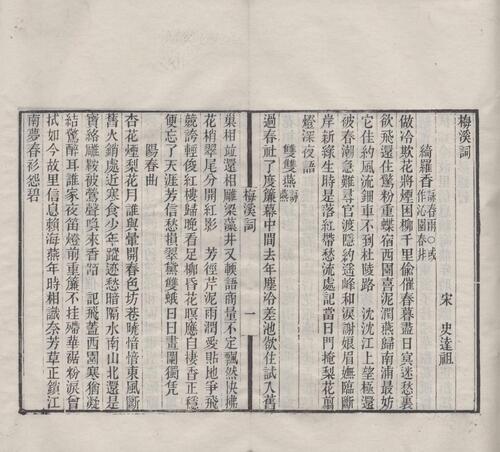 梅溪詞
宋 史達祖
綺羅香 詠春雨○或作沁園春非
做冷欺花將煙困柳千里偷催春暮盡日冥迷愁裏
欲飛還住驚粉重蝶宿西園喜泥潤燕歸南浦最妨
它佳約風流鈿車不到杜陵路 沈沈江上望極還
被春潮急難尋官渡隱約遙峰和淚謝娘眉嫵臨斷
岸新綠生時是落紅帶愁流處記當日門掩梨花翦
燈深夜語
雙雙燕 詠燕
過春社了度簾幕中間去年塵冷差池欲住試入舊
梅溪詞 一
巢相並還相雕梁藻井又輭語商量不定飄然快拂
花梢翠尾分開紅影 芳徑芹泥雨潤愛貼地爭飛
競誇輕俊紅樓歸晚看足柳昏花暝應自棲香正穩
便忘了天涯芳信愁損翠黛雙蛾日日畫闌獨凭
陽春曲
杏花煙梨花月誰與暈開春色坊巷曉愔愔東風斷
舊火銷處近寒食少年蹤迹愁暗隔水南山北還是
寶絡雕鞍被鶯聲喚來香陌 記飛蓋西園寒猶凝
結驚醉耳誰家夜笛燈前重簾不挂殢華裾粉淚曾
拭如今故里信息賴海燕年時相識奈芳草正鎖江
南夢春衫怨碧